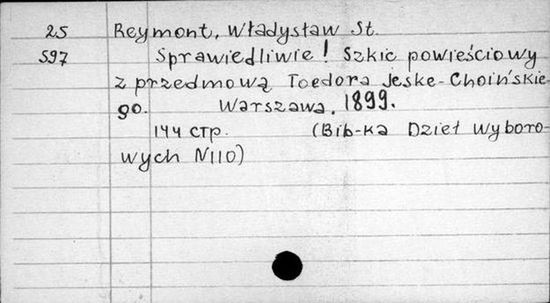 25 Reymont, Władysław St.
597 Sprawiedliwie! Szkic powieściowy
z przedmową Toedora Jeske-Choińskie-
go. Warszawa, 1899.
144 стр. (Bib-ка Dzieł wyboro-
wych N110)